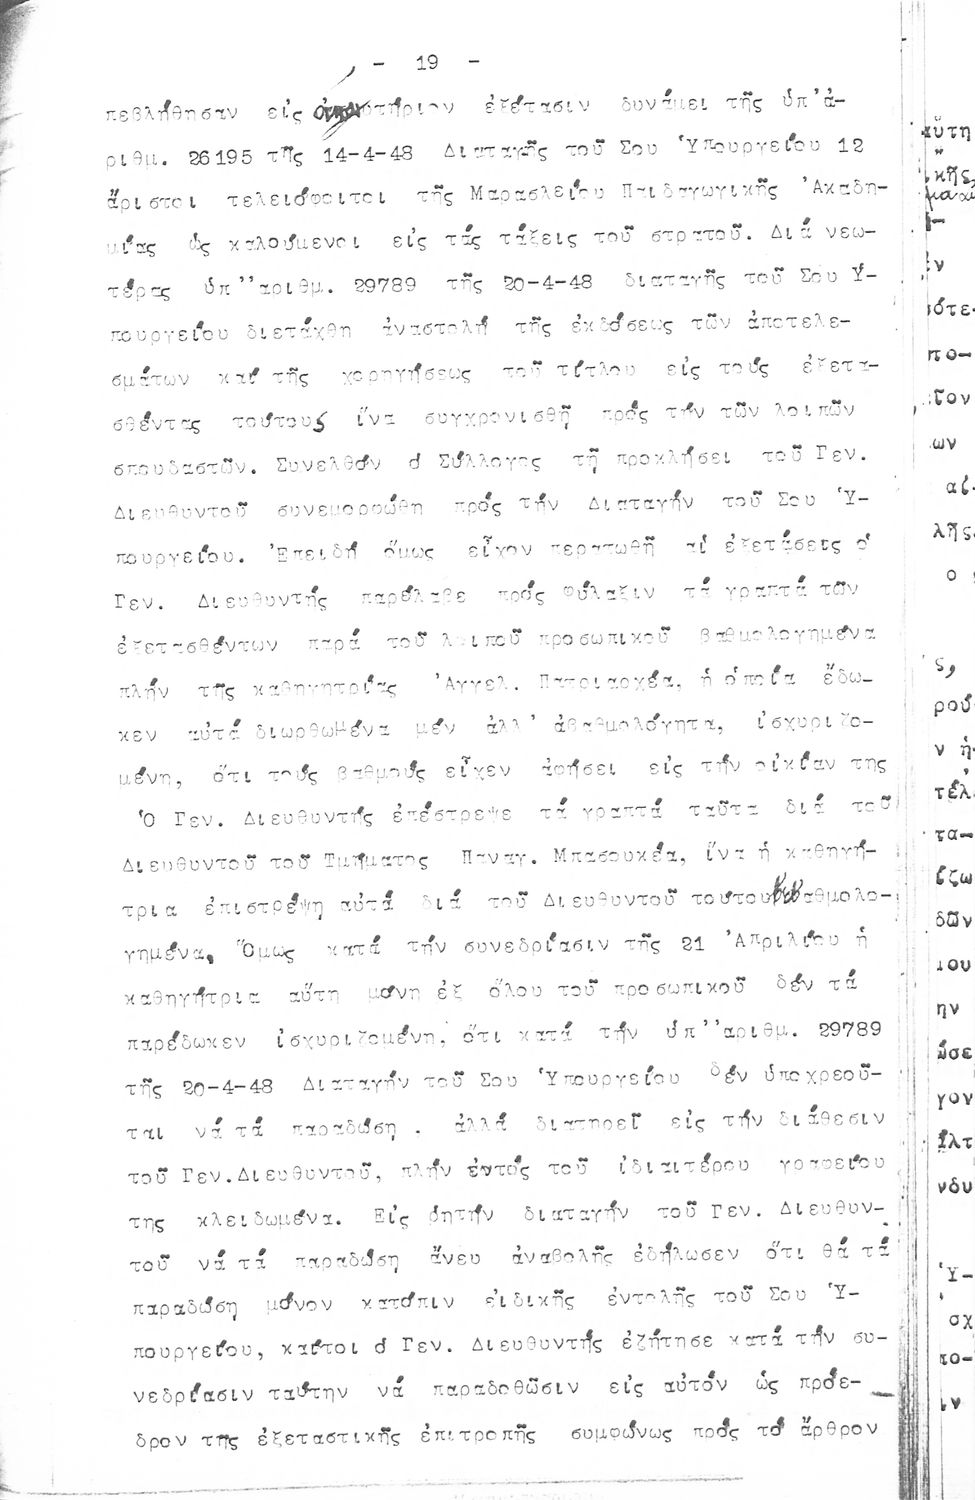 - 19 -
πεβλήθησαν εἰς ἐξέτασιν δυνάμει τῆς ὑπ'ἀ-
ριθμ. 26195 τῆς 14-4-48 Διαταγῆς τοῦ Σου Ὑπουργείου 12
ἄριστοι τελειόφοιτοι τῆς Μαρασλείου Παιδαγωγικῆς Ἀκαδη-
μίας ὡς καλούμενοι εἰς τάς τάξεις τοῦ στρατοῦ. Διά νεω-
τέρας ὑπ''αριθμ. 29789 τῆς 20-4-48 διαταγῆς τοῦ Σου Ὑ-
πουργείου διετάχθη ἀναστολή τῆς ἐκδόσεως τῶν ἀποτελε-
σμάτων καί τῆς χορηγήσεως τοῦ τίτλου εἰς τούς ἐξετα-
σθέντας τούτους ἵνα συγχρονισθῆ πρός τήν τῶν λοιπῶν
σπουδαστῶν. Συνελθόν ὁ Σύλλογος τῆ προκλήσει τοῦ Γεν.
Διευθυντοῦ συνεμορφώθη πρός τήν Διαταγήν τοῦ Σου Ὑ-
πουργείου. Ἐπειδή ὅμως εἶχον περατωθῆ αἱ ἐξετάσεις ὁ
Γεν. Διευθυντής παρέλαβε πρός φύλαξιν τά γραπτά τῶν
ἐξετασθέντων παρά τοῦ λοιποῦ προσωπικοῦ βαθμολογημένα
πλήν τῆς καθηγητρίας Ἀγγελ. Πατριαρχέα, ἡ ὁποία ἔδω-
κεν αὐτά διωρθωμένα μέν ἀλλ' ἀβαθμολόγητα, ἰσχυριζο-
μένη, ὅτι τούς βαθμούς εἶχεν ἀφήσει εἰς τήν οἰκίαν της
Ὁ Γεν. Διευθυντής ἐπέστρεψε τά γραπτά ταῦτα διά τοῦ
Διευθυντοῦ τοῦ Τμήματος Παναγ. Μπασουκέα, ἵνα ἡ καθηγή-
τρια ἐπιστρέψη αὐτά διά τοῦ Διευθυντοῦ τούτου βαθμολο-
γημένα. Ὅμως κατά τήν συνεδρίασιν τῆς 21 Ἀπριλίου ἡ
καθηγήτρια αὕτη μόνη ἐξ ὅλου τοῦ προσωπικοῦ δέν τά
παρέδωκεν ἰσχυριζομένη, ὅτι κατά τήν ὑπ''αριθμ. 29789
τῆς 20-4-48 Διαταγήν τοῦ Σου Ὑπουργείου δέν ὑποχρεοῦ-
ται νά τά παραδώση . ἀλλά διατηρεῖ εἰς τήν διάθεσιν
τοῦ Γεν.Διευθυντοῦ, πλήν ἐντός τοῦ ἰδιαιτέρου γραφείου
της κλειδωμένα. Εἰς ρητήν διαταγήν τοῦ Γεν. Διευθυν-
τοῦ νά τά παραδώση ἄνευ ἀναβολῆς ἐδήλωσεν ὅτι θά τά
παραδώση μόνον κατόπιν εἰδικῆς ἐντολῆς τοῦ Σου Ὑ-
πουργείου, καίτοι ὁ Γεν. Διευθυντής ἐζήτησε κατά τήν συ-
νεδρίασιν ταύτην νά παραδοθῶσιν εἰς αὐτόν ὡς πρόε-
δρον τῆς ἐξεταστικῆς ἐπιτροπῆς συμφώνως πρός τό ἄρθρον